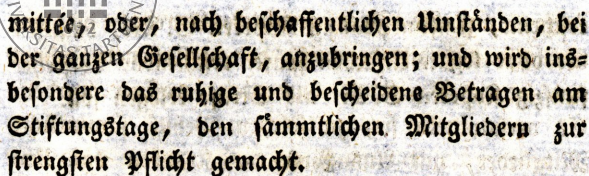 mittée, oder, nach beschaffentlichen Umständen, bei
der ganzen Gesellschaft, anzubringen; und wird ins=
besondere das ruhige und bescheidene Betragen am
Stiftungstage, den sämmtlichen Mitgliedern zur
strengsten Pflicht gemacht.